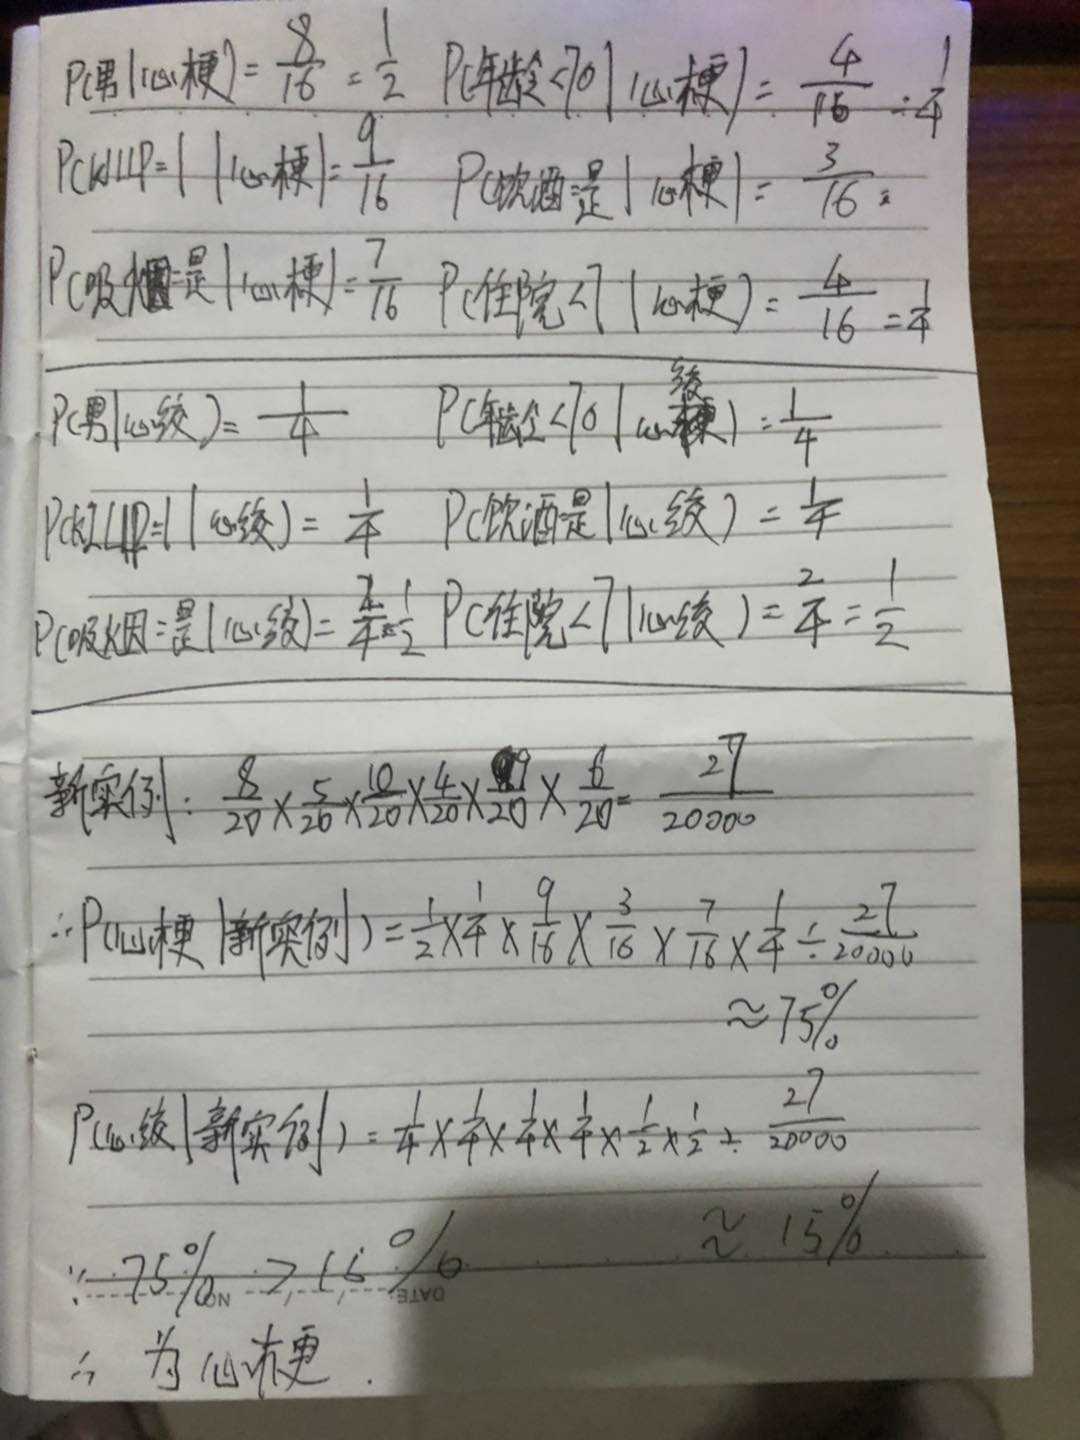 P(男|心梗)=8/16=1/2 P(年龄<70|心梗)=4/16=1/4
P(KILLIP=1|心梗)=9/16 P(饮酒=是|心梗)=3/16
P(吸烟=是|心梗)=7/16 P(住院<7|心梗)=4/16=1/4
P(男|心绞)=1/4 P(年龄<70|心绞)=1/4
P(KILLIP=1|心绞)=1/4 P(饮酒=是|心绞)=1/4
P(吸烟=是|心绞)=2/4=1/2 P(住院<7|心绞)=2/4=1/2
新实例: 8/20×5/20×10/20×4/20×9/20×6/20=27/20000
∴P(心梗|新实例)=1/2×1/4×9/16×3/16×7/16×1/4÷27/20000
≈75%
P(心绞|新实例)=1/4×1/4×1/4×1/4×1/2×1/2÷27/20000
≈15%
∵75%>15%
NO. DATE:
∴为心梗.